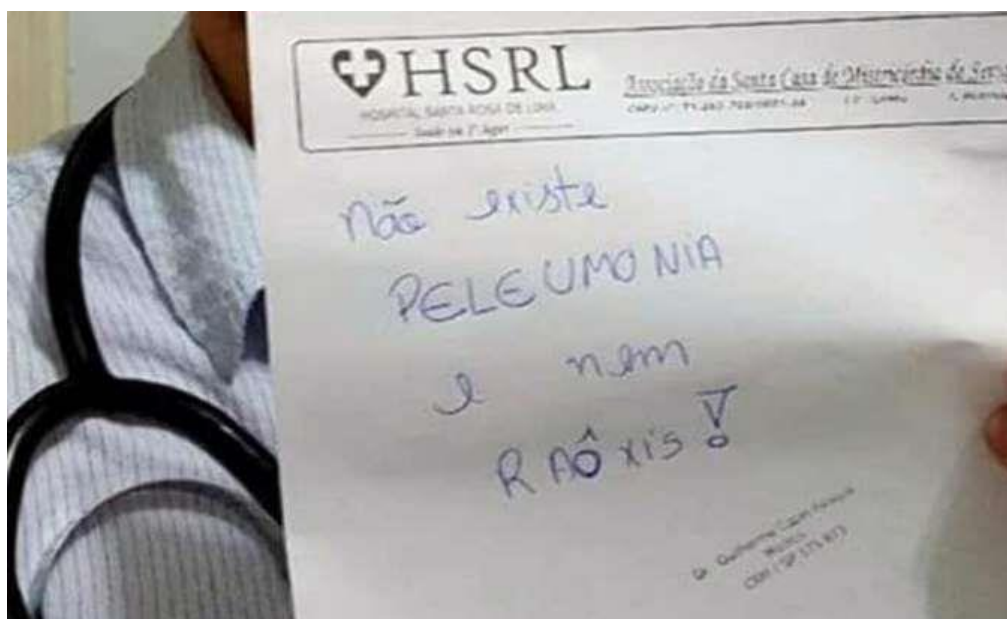 HSRL
HOSPITAL SANTA ROSA DE LIMA
Associação da Santa Casa de Misericórdia de
não existe
PELEUMONIA
e nem
RAÔXIS!
Dr. Guilherme
Médico